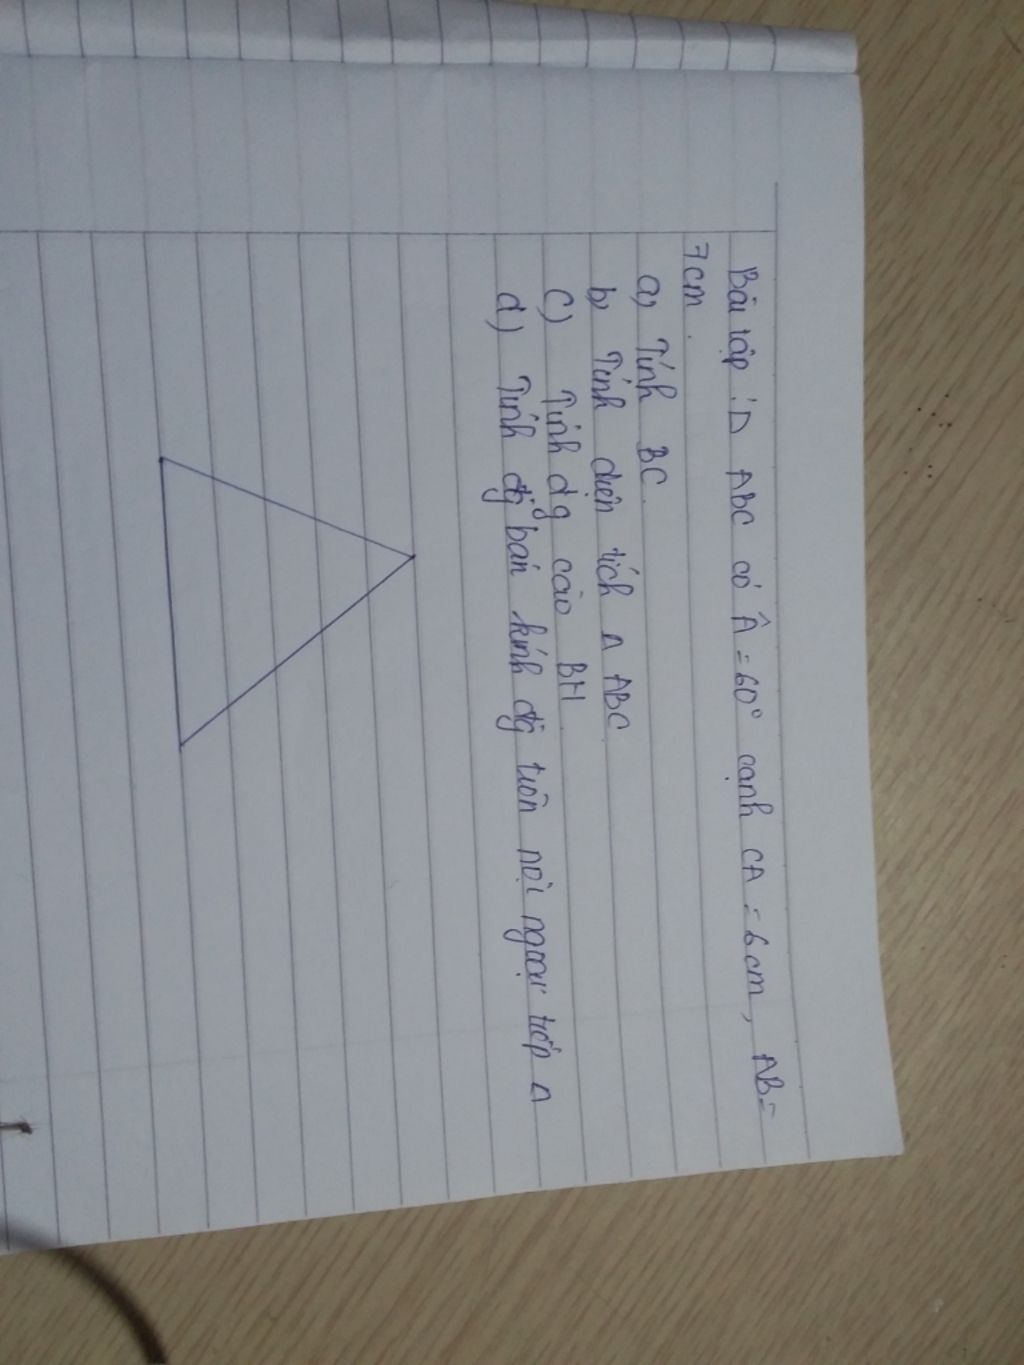 Bài tập : Δ ABC có Â = 60° cạnh CA = 6cm, AB =
7cm.
a, Tính BC.
b, Tính diện tích Δ ABC
c) Tính đg cao BH
d) Tính độ bán kính đg tròn nội ngoại tiếp Δ